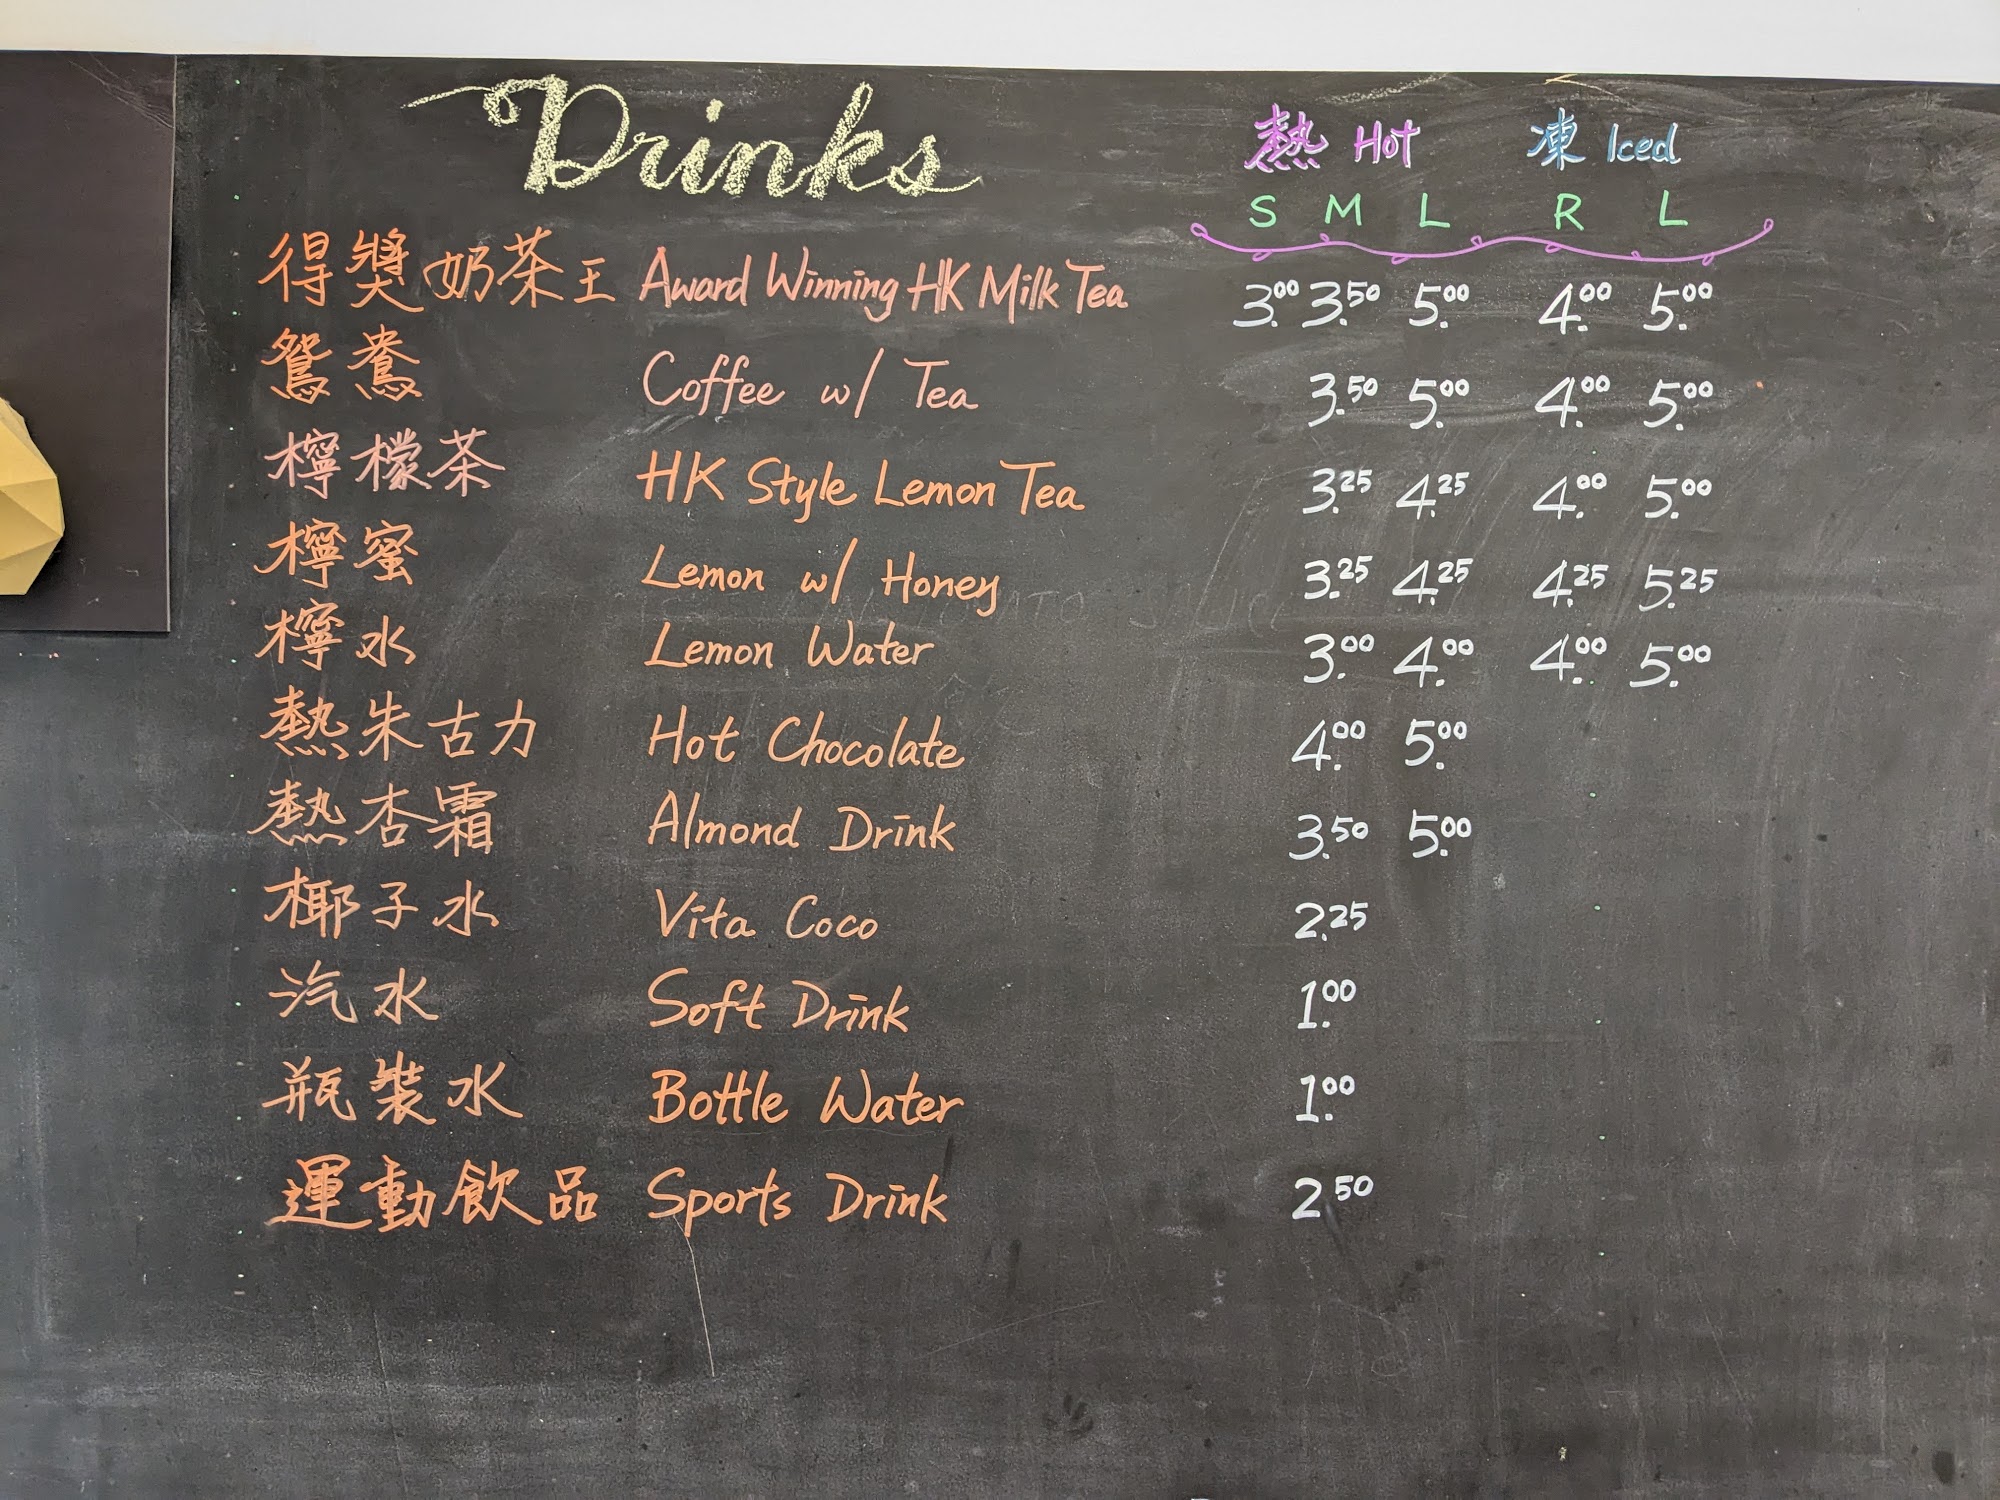 Drinks
熱 Hot 凍 Iced
S M L R L
得獎奶茶王 Award Winning HK Milk Tea 3.00 3.50 5.00 4.00 5.00
鴛鴦 Coffee w/ Tea 3.50 5.00 4.00 5.00
檸檬茶 HK Style Lemon Tea 3.25 4.25 4.00 5.00
檸蜜 Lemon w/ Honey 3.25 4.25 4.25 5.25
檸水 Lemon Water 3.00 4.00 4.00 5.00
熱朱古力 Hot Chocolate 4.00 5.00
熱杏霜 Almond Drink 3.50 5.00
椰子水 Vita Coco 2.25
汽水 Soft Drink 1.00
瓶裝水 Bottle Water 1.00
運動飲品 Sports Drink 2 50